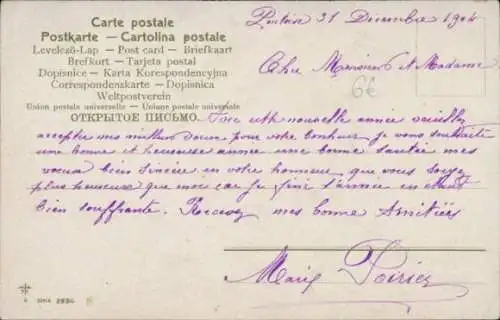 Carte postale
Postkarte — Cartolina postale
Levelező-Lap — Post card — Briefkaart
Brefkort — Tarjeta postal
Dopisnice — Karta Korespondencyjna
Correspondenskarte — Dopisnica
Weltpostverein
Union postale universelle — Unione postale universale
ОТКРЫТОЕ ПИСЬМО.
31 Décembre 1904
Cher Monsieur et Madame
6€
cette nouvelle année veuillez
accepter mes meilleur pour votre bonheur je vous souhaite
une bonne et heureuse année une bonne santée mes
voeux bien sincère en votre honneur que vous soyez
plus heureuse que moi car je finie l'année en étant
bien souffrante. Recevez mes bonne Amitiées
Marie Poirier